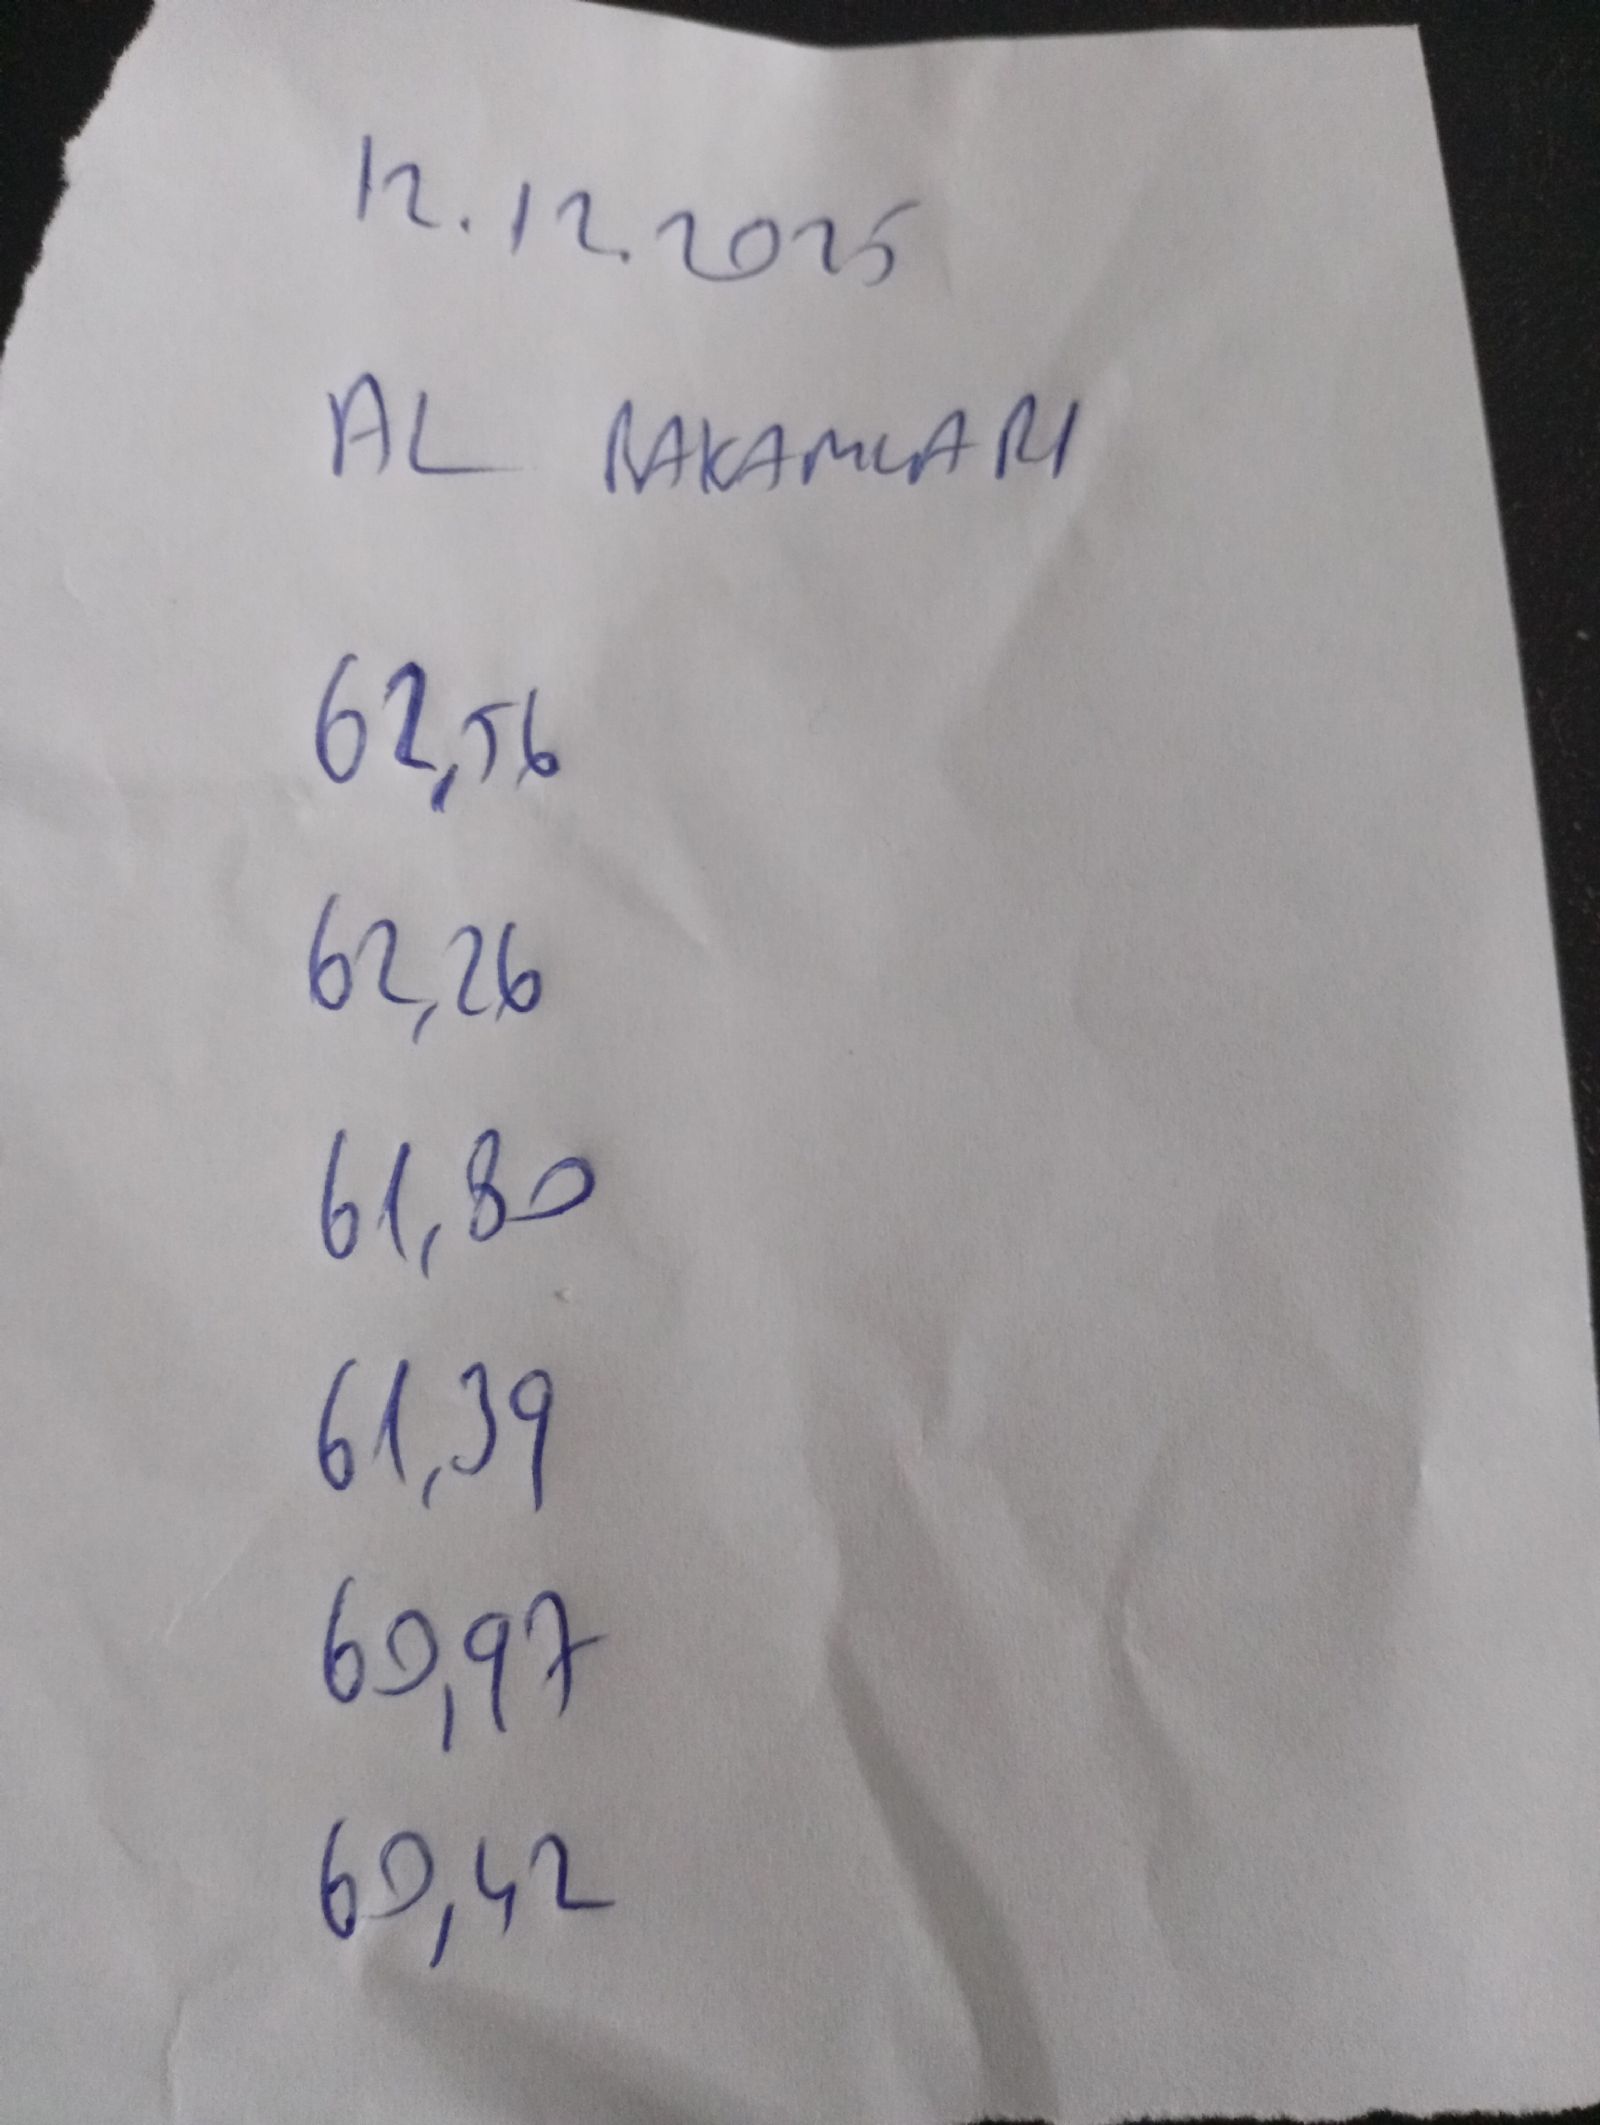 12.12.2025
AL RAKAMLARI
62,56
62,26
61,80
61,39
60,97
60,42